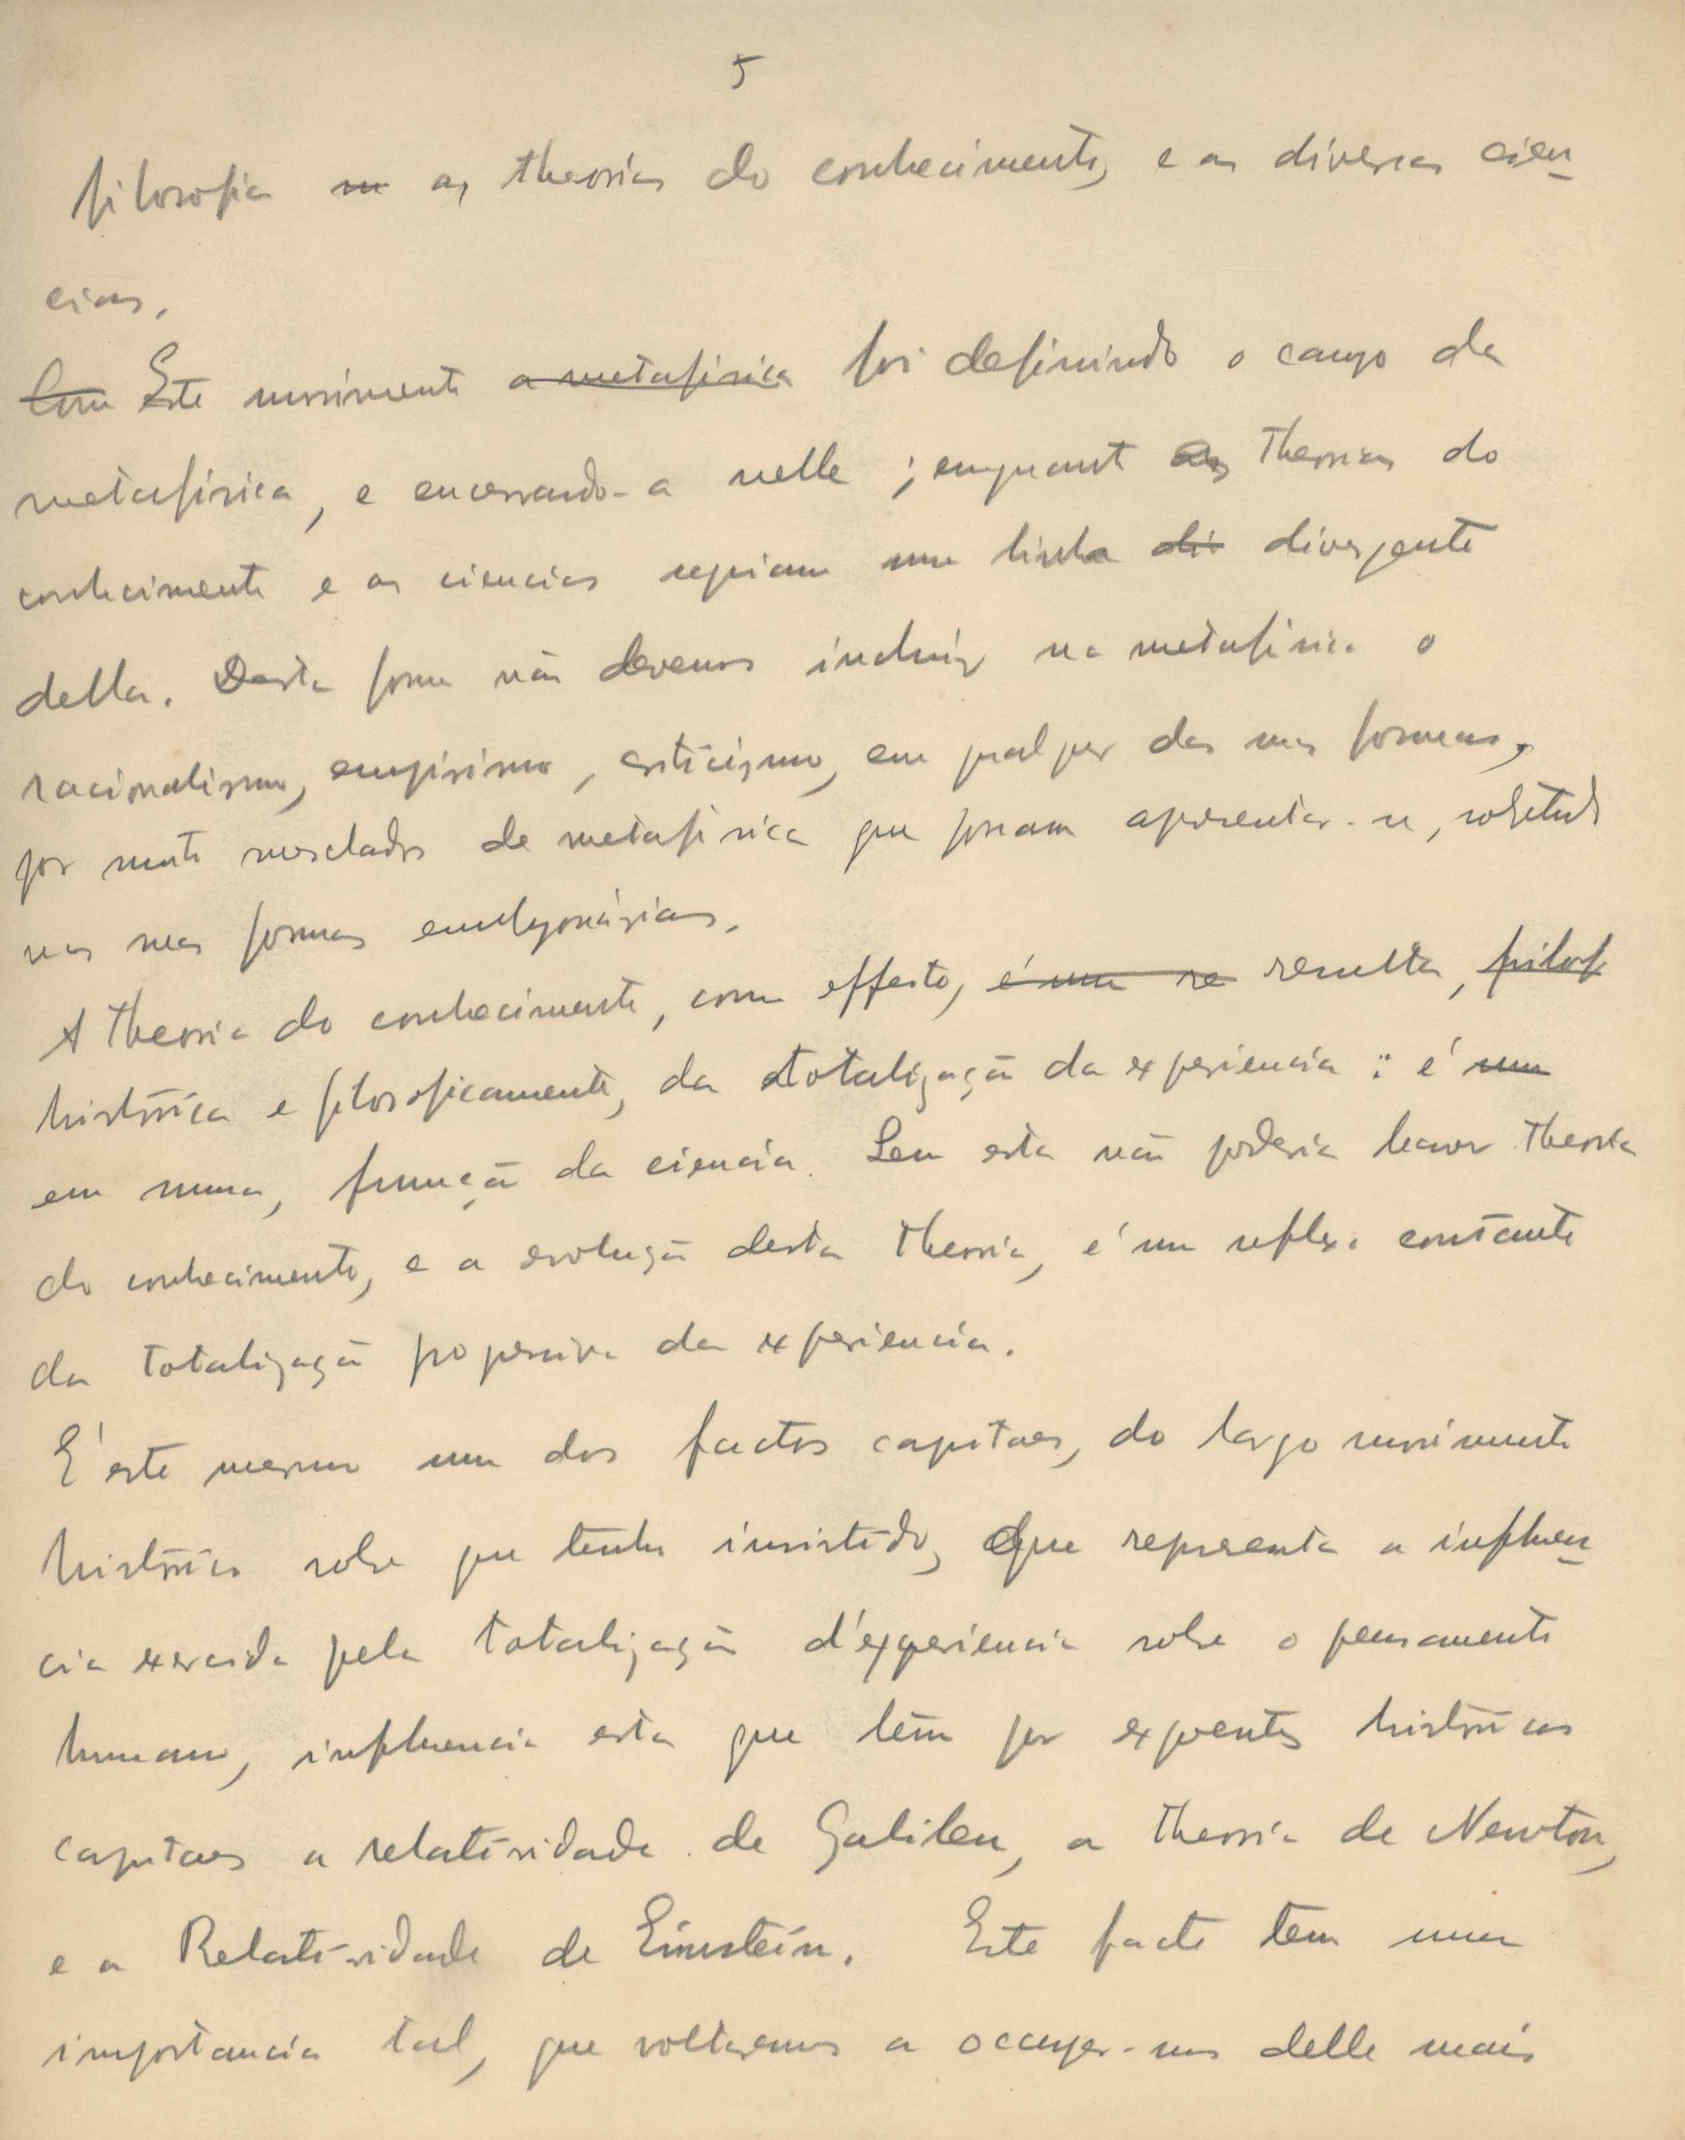 5
filosofia ~~se~~ as theorias do conhecimento, e as diversas cien-
cias.
~~Com~~ Este movimento ~~a metafisica~~ foi definindo o campo da
metafisica, e encerrando-a nelle; emquanto as theorias do
conhecimento e as ciencias seguiam uma linha ~~div~~ divergente
della. Desta forma não devemos incluir na metafisica o
racionalismo, empirismo, criticismo, em qualquer das suas formas,
por muito mesclados de metafisica que possam apresentar-se, sobretudo
nas suas formas embryonárias.
A theoria do conhecimento, com effeito, ~~é um re~~ resulta, ~~filosf~~
histórica e filosoficamente, da totalização da experiencia: é ~~uma~~
em summa, funcção da ciencia. Sem esta não poderia haver theoria
do conhecimento, e a evolução desta theoria, é um reflexo constante
da totalização progressiva da experiencia.
É este mesmo um dos factos capitaes, do largo movimento
histórico sobre que tenho insistido, que representa a influen-
cia exercida pela totalização d'experiencia sobre o pensamento
humano, influencia esta que tem por expoentes históricos
capitaes a relatividade de Galileu, a theoria de Newton,
e a Relatividade de Einstein. Este facto tem uma
importancia tal, que voltaremos a occupar-nos delle mais